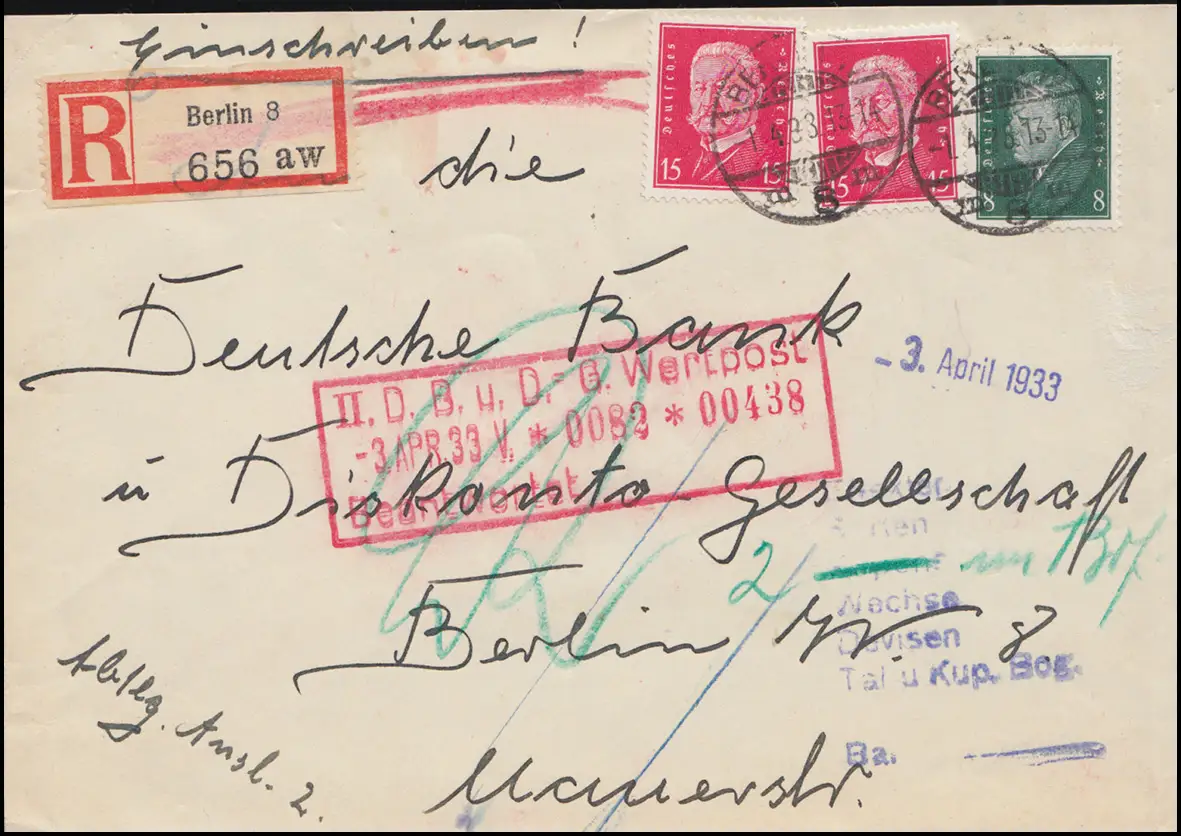 Einschreiben!
R
Berlin 8
656 aw
Deutsches Reich
15 15
Deutsches Reich
15 15
Deutsches Reich
8 8
BERLIN
1.4.33.13-14
8
BERLIN
8
die
Deutsche Bank
- 3. April 1933
II. D. B. u. D.-G. Wertpost
-3 APR. 33 V. * 0082 * 00438
Beantwortet
u Diskonto-Gesellschaft
2
Berlin W. 8
Wechse
Devisen
Tal u Kup. Bog.
Abtlg. Ausl. 2.
Mauerstr.
Ba.